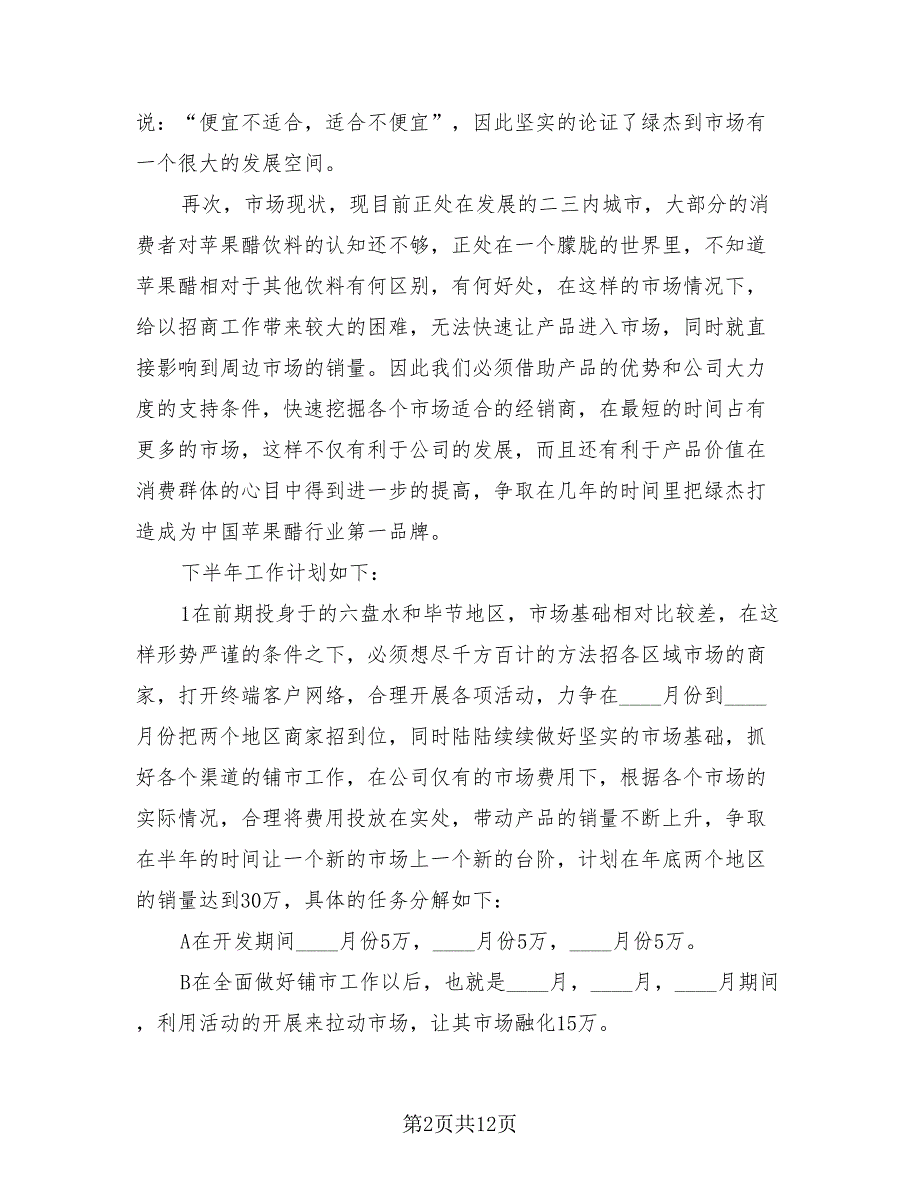 说：“便宜不适合，适合不便宜”，因此坚实的论证了绿杰到市场有
一个很大的发展空间。
再次，市场现状，现目前正处在发展的二三内城市，大部分的消
费者对苹果醋饮料的认知还不够，正处在一个朦胧的世界里，不知道
苹果醋相对于其他饮料有何区别，有何好处，在这样的市场情况下，
给以招商工作带来较大的困难，无法快速让产品进入市场，同时就直
接影响到周边市场的销量。因此我们必须借助产品的优势和公司大力
度的支持条件，快速挖掘各个市场适合的经销商，在最短的时间占有
更多的市场，这样不仅有利于公司的发展，而且还有利于产品价值在
消费群体的心目中得到进一步的提高，争取在几年的时间里把绿杰打
造成为中国苹果醋行业第一品牌。
下半年工作计划如下：
1在前期投身于的六盘水和毕节地区，市场基础相对比较差，在这
样形势严谨的条件之下，必须想尽千方百计的方法招各区域市场的商
家，打开终端客户网络，合理开展各项活动，力争在____月份到____
月份把两个地区商家招到位，同时陆陆续续做好坚实的市场基础，抓
好各个渠道的铺市工作，在公司仅有的市场费用下，根据各个市场的
实际情况，合理将费用投放在实处，带动产品的销量不断上升，争取
在半年的时间让一个新的市场上一个新的台阶，计划在年底两个地区
的销量达到30万，具体的任务分解如下：
A在开发期间____月份5万，____月份5万，____月份5万。
B在全面做好铺市工作以后，也就是____月，____月，____月期间
，利用活动的开展来拉动市场，让其市场融化15万。
第2页共12页